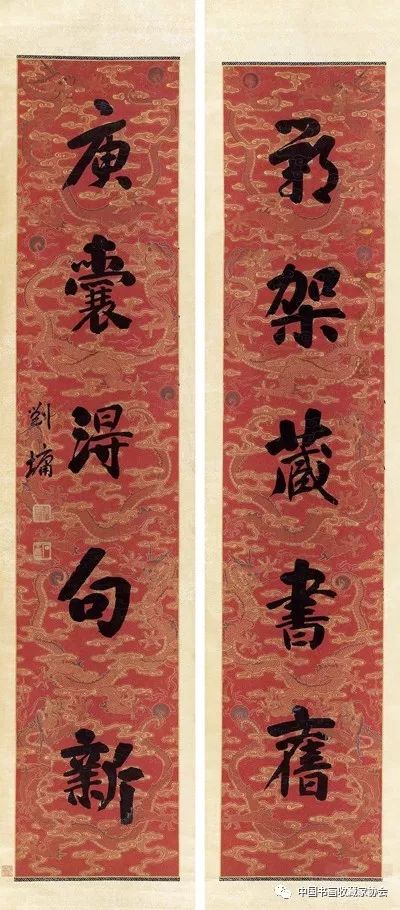 鄴架藏書舊
庚囊得句新
劉墉
中国书画收藏家协会